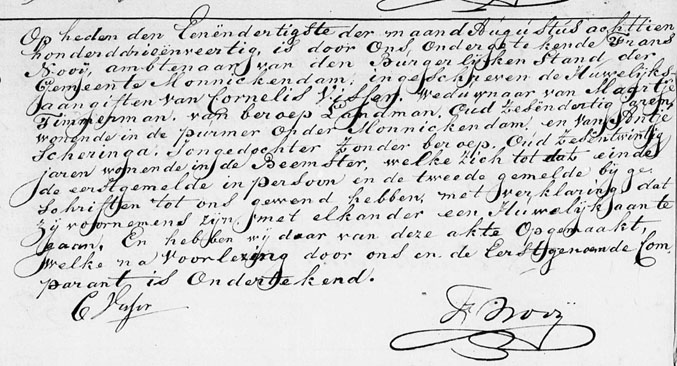 Op heden den Eenëndertigste der maand Augustus achttien
honderd drieënveertig, is door Ons Ondergetekende Frans
Nooij, ambtenaar van den Burgerlijken Stand der
Gemeente Monnickendam, ingeschreven de Huwelijks-
aangiften van Cornelis Visser, Weduwnaar van Maartje
Timmerman, van beroep Landman, Oud zesëndertig jaren
wonende in de Purmer Onder Monnickendam, en van Antje
Scheringa, Jongedochter zonder beroep, Oud zesentwintig
jaren wonende in de Beemster, welke zich tot dat einde
de eerstgemelde in persoon en de tweede gemelde bij ge-
schriften tot ons gewend hebben, met verklaring dat
zij voornemens zijn, met elkander een Huwelijk aan te
gaan. En hebben wij daar van deze akte Opgemaakt,
welke na Voorlezing door ons en de Eerstgenoemde Com-
parant is Onderteekend.
C Visser
Fr Nooij